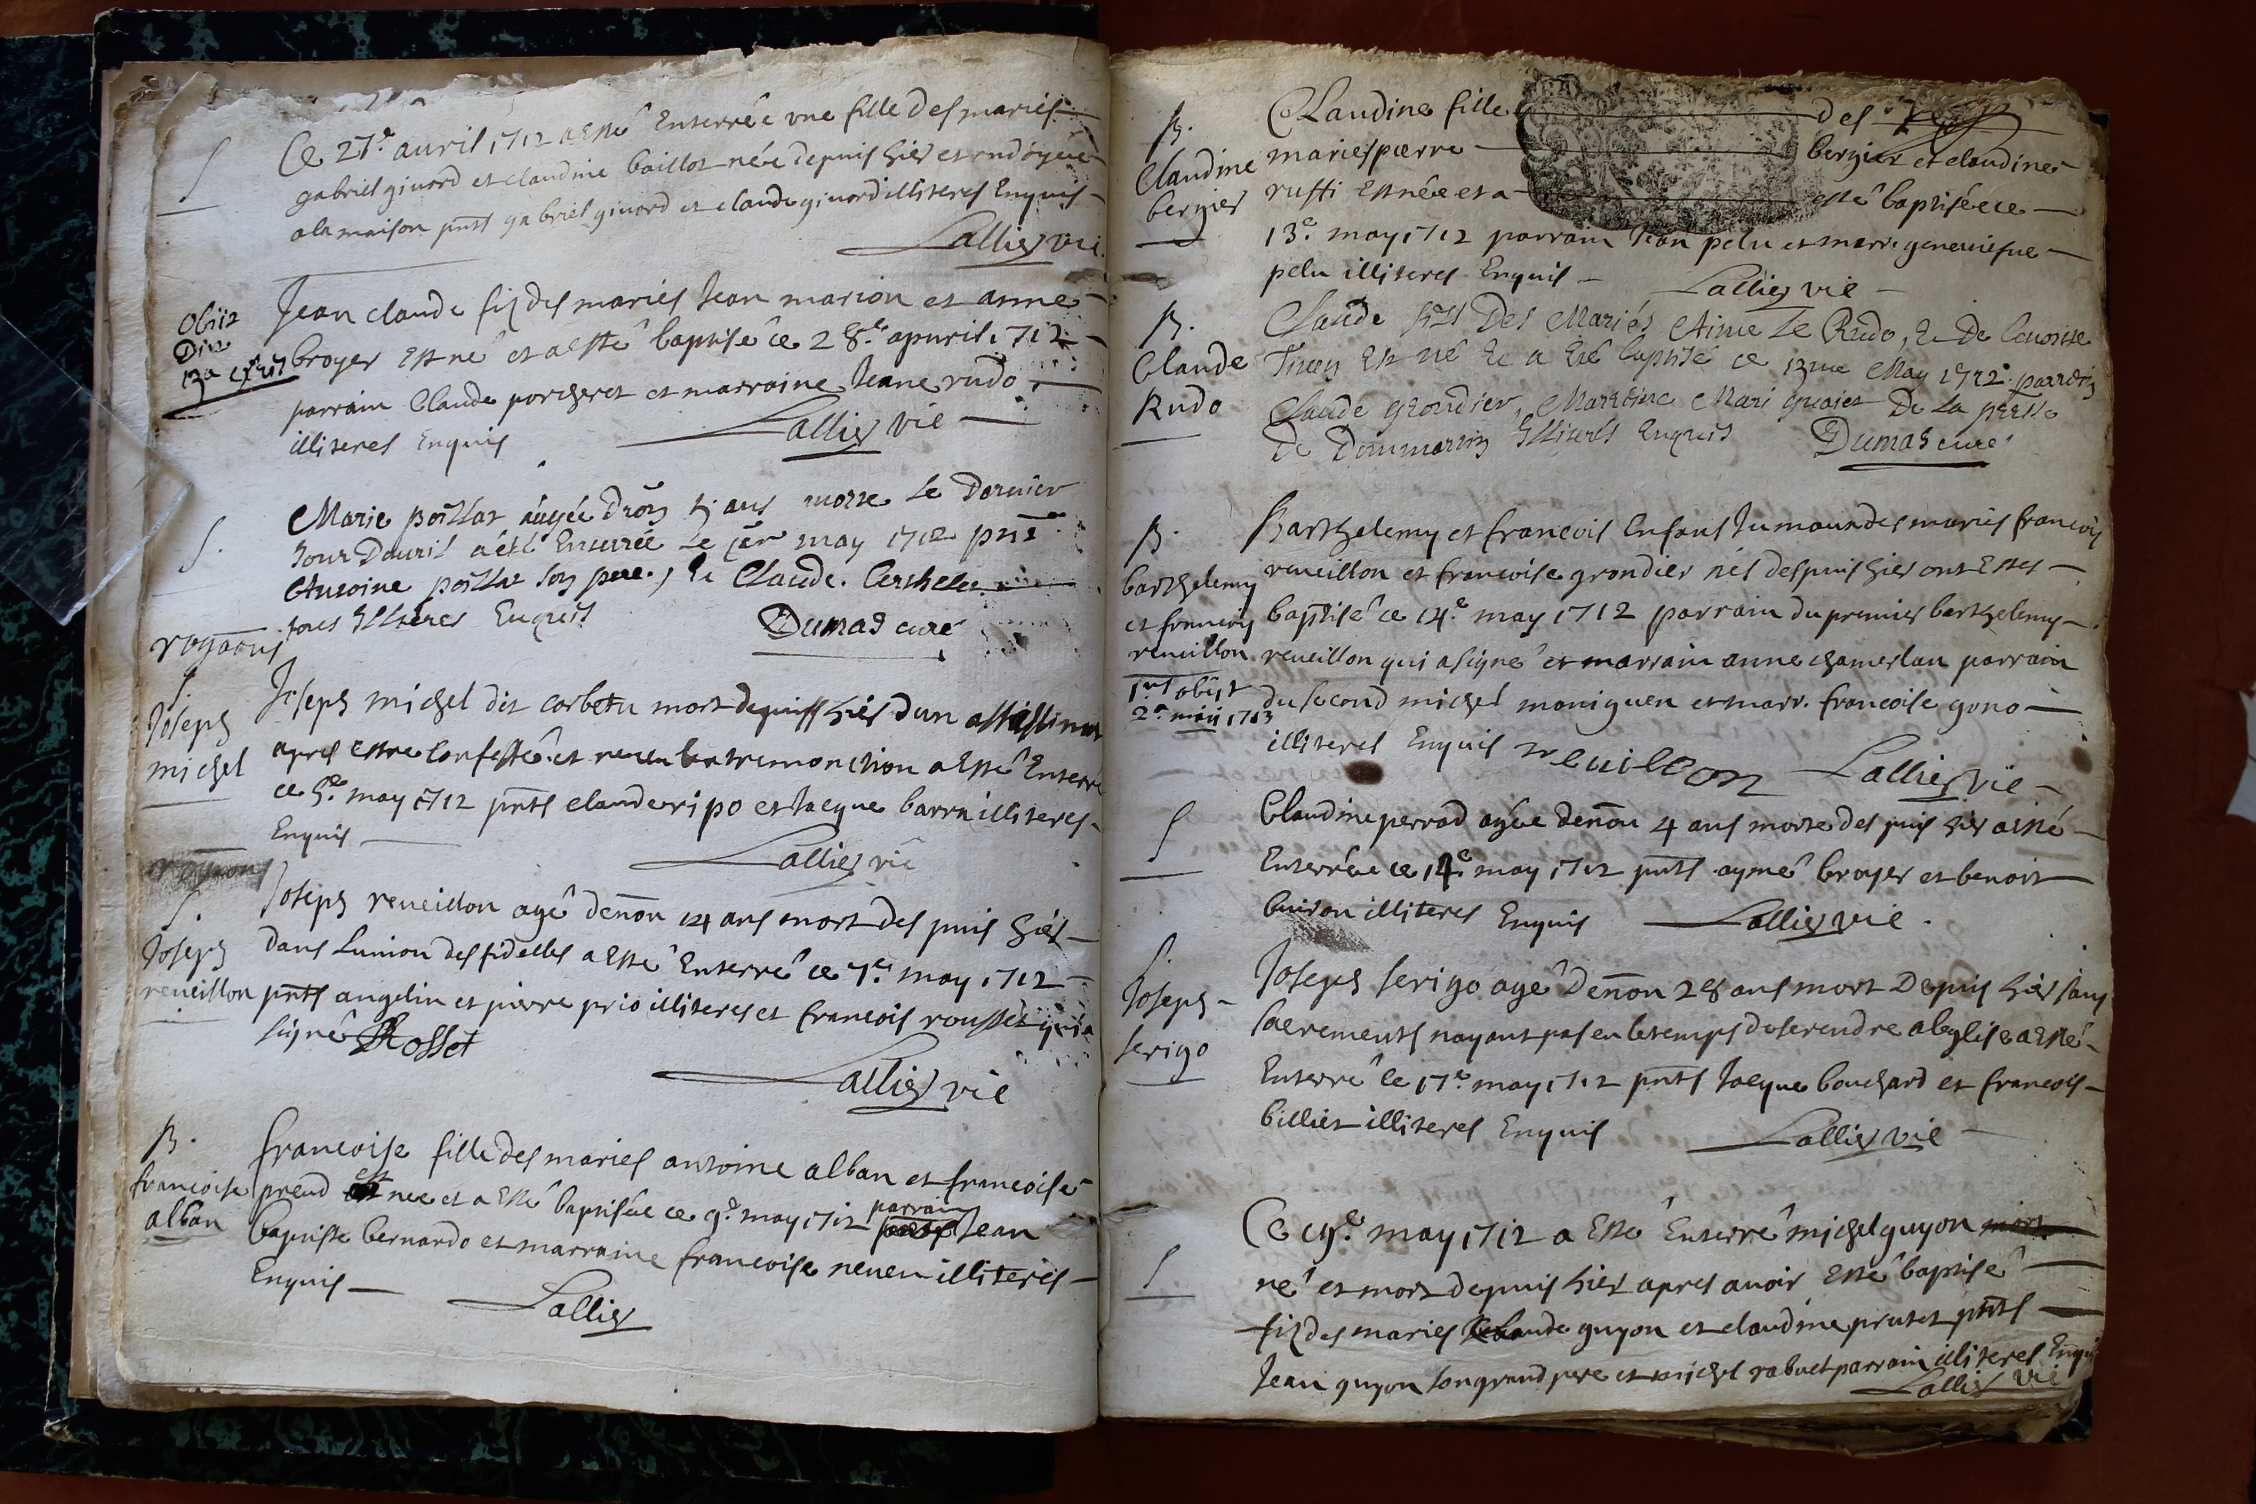 S
Ce 27e. auril 1712 a Esté Enterrée une fille des mariés
gabriel giuord et claudine baillot née depuis hier et ondoyée
a la maison pnts gabriel giuord et claude giuord illiteres Enquis
Lallier vic.
Obiit
Die
13a
Jean claude fiz des mariés Jean marion et anne
broyer Est né et a esté baptisé ce 28e. apuril 1712
parrain Claude porcheret et marraine Jeane rudo
illiteres Enquis
Lallier vic
S.
Marie poillat âgée ans morte le Dernier
Jour Dauril a été Enterrée le 1er may 1712 pnt
Antoine poillat son pere, et Claude Berthelet
tous Illiteres Enquis
Dumas curé
rogaons
S.
Joseph
michel
Joseph michel dit corbetu mort depuis hier dun assassinat
apres estre confessé et receu lextremonction a Esté Enterré
ce 5e. may 1712 pnts claude ripo et Jacque barra illiteres
Enquis
Lallier vic
S.
Joseph
reueillon
Joseph reueillon agé denon 14 ans mort des puis hier
dans Lunion des fidelles a Esté Enterré ce 7e. may 1712
pnts angelin et pierre prio illiteres et francois rousset qui a
signé Rosset
Lallier vic
B.
francoise
alban
francoise fille des mariés antoine alban et francoise
prend est nee et a Esté baptisée ce 9e. may 1712 parrain Jean
baptiste bernardo et marraine francoise neueu illiteres
Enquis
Lallier
B.
Claudine
bergier
Claudine fille des
mariés pierre bergier et claudine
ruffi Est née et a esté baptisée ce
13e. may 1712 parrain Jean pelu et marr. geneuiefue
pelu illiteres Enquis
Lallier vic
B.
Claude
Rudo
Claude fils Des Mariés Aime Le Rudo, et De
Est né et a été baptisé ce 13me May 1712. parrein
Claude grondier, Marreine Mari De La
De Dommartin Illiterés Enquis
Dumas curé
B.
barthelemy
et francois
reueillon
1us obiit
2a maii 1713
Barthelemy et francois Enfans Jumaux des mariés francois
reueillon et francoise grondier nés despuis hier ont Estes
baptisé ce 14e. may 1712 parrain du premier barthelemy
reueillon qui a signé et marrain anne chamerlan parrain
du second michel moniguen et marr. francoise gono
illiteres Enquis reuillon Lallier vic
S
Claudine perrod agée denon 4 ans morte des puis hier a esté
Enterrée ce 14e. may 1712 pnts aymé broyer et benoit
buiron illiteres Enquis Lallier vic.
S.
Joseph
serigo
Joseph serigo agé denon 28 ans mort Depuis hier sans
sacrements nayant pas eu le temps de se rendre a leglise a Esté
Enterré le 17e. may 1712 pnts Jacque bouchard et francois
billiet illiteres Enquis
Lallier vic
S
Ce 19e. may 1712 a Esté Enterré michel guyon mort
né et mort depuis hier apres auoir Esté baptisé
fiz des mariés Claude guyon et claudine prutet pnts
Jean guyon son grand pere et michel rabuet parrain illiteres Enquis
Lallier vic